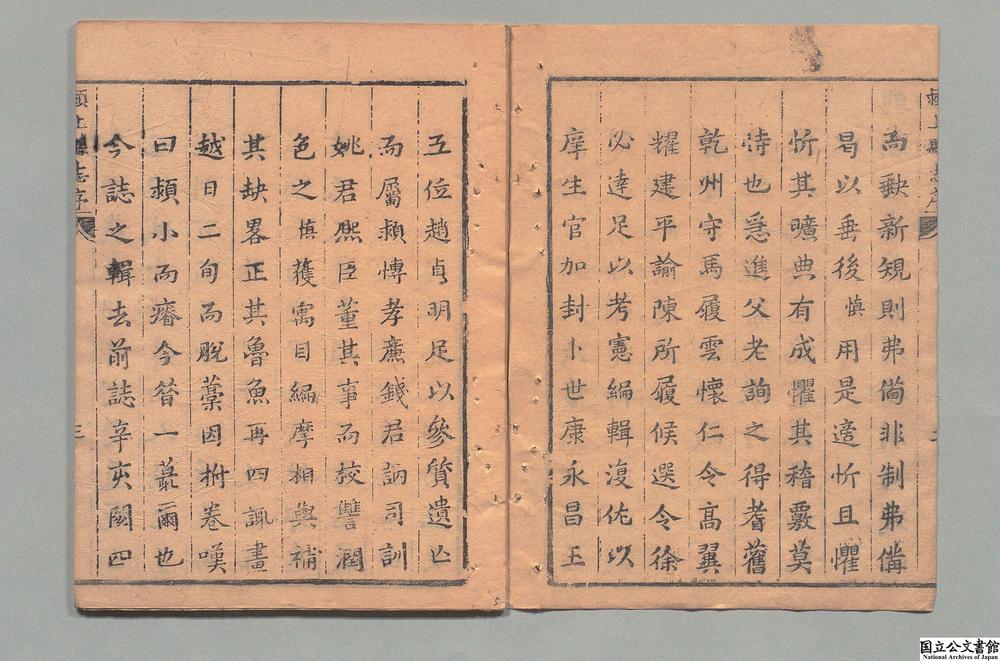 而缺新規則弗備非制弗備
曷以垂後慎用是遑忻且懼
忻其曠典有成懼其稽覈莫
恃也爰進父老詢之得耆舊
乾州守馬履雲懷仁令高翼
耀建平諭陳所履候選令徐
必達足以考憲編輯復佐以
庠生官加封卜世康永昌王
五位趙貞明足以參質遺亡
而屬潁博孝廉錢君訥司訓
姚君熙臣董其事而校讐潤
色之慎獲寓目編摩相與補
其缺畧正其魯魚再四諷畫
越日二旬而脫藁因拊卷嘆
曰潁小而瘠今昝一蕞爾也
今誌之輯去前誌辛亥閱四
潁上縣志序
三
国立公文書館
National Archives of Japan